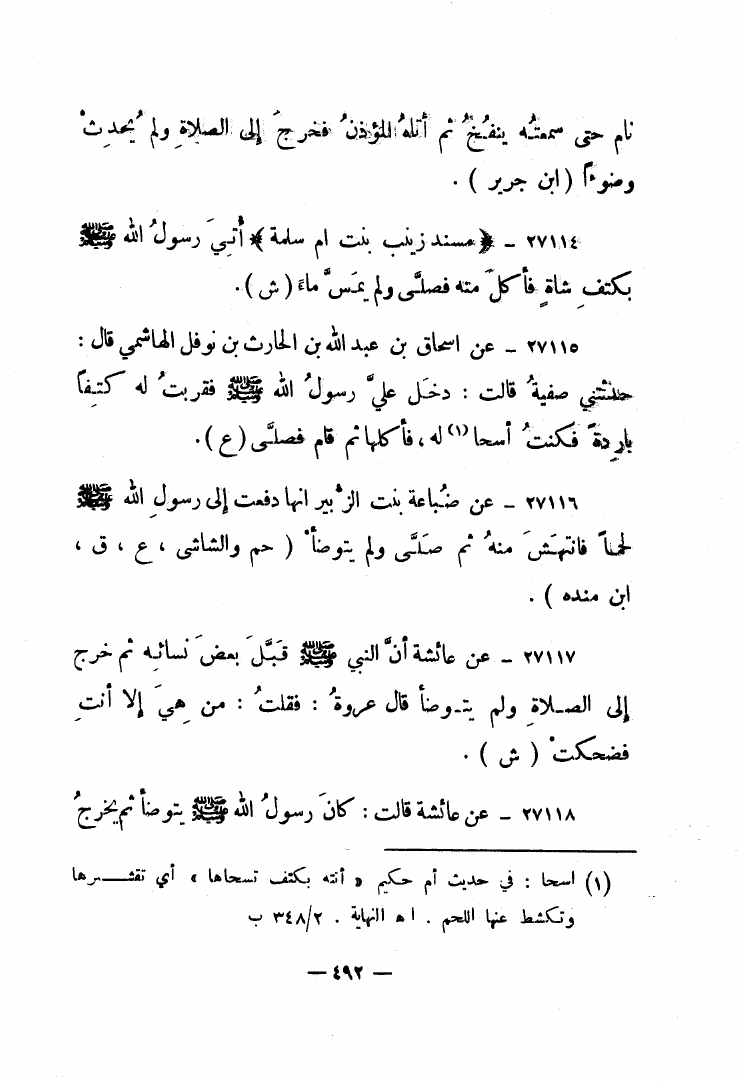 نام حتى سمعتُه ينفُخُ ثم أتاهُ المؤذنُ فخرجَ إلى الصلاةِ ولم يُحدِثْ
وضوءاً ( ابن جرير ) .
٢٧١١٤ ــ ﴿ مسند زينب بنت ام سلمة ﴾ أُتِيَ رسولُ الله ﷺ
بكتفِ شاةٍ فأكلَ منه فصلَّى ولم يمَسَّ ماءً ( ش ) .
٢٧١١٥ ــ عن اسحاق بن عبد الله بن الحارث بن نوفل الهاشمي قال :
حدثتني صفيةُ قالت : دخَل عليَّ رسولُ الله ﷺ فقربتُ له كتِفاً
باردةً فكنتُ أسحا(١) له ، فأكلها ثم قام فصلَّى ( ع ) .
٢٧١١٦ ــ عن ضُباعة بنت الزُّبير انها دفعت إلى رسولِ الله ﷺ
لحماً فانتهَشَ منهُ ثم صلَّى ولم يتوضأْ ( حم والشاشى ، ع ، ق ،
ابن منده ) .
٢٧١١٧ ــ عن عائشة أنَّ النبي ﷺ قَبَّلَ بعضَ نسائِه ثم خرج
إلى الصلاةِ ولم يتوضأ قال عروةُ : فقلتُ : من هِيَ إلا أنتِ
فضحكتْ ( ش ) .
٢٧١١٨ ــ عن عائشة قالت : كانَ رسولُ الله ﷺ يتوضأ ثم يخرجُ
(١) اسحا : في حديث أم حكيم « أتته بكتف تسحاها » أي تقشرها
وتكشط عنها اللحم . ا ه النهاية . ٣٤٨/٢ ب
— ٤٩٢ —